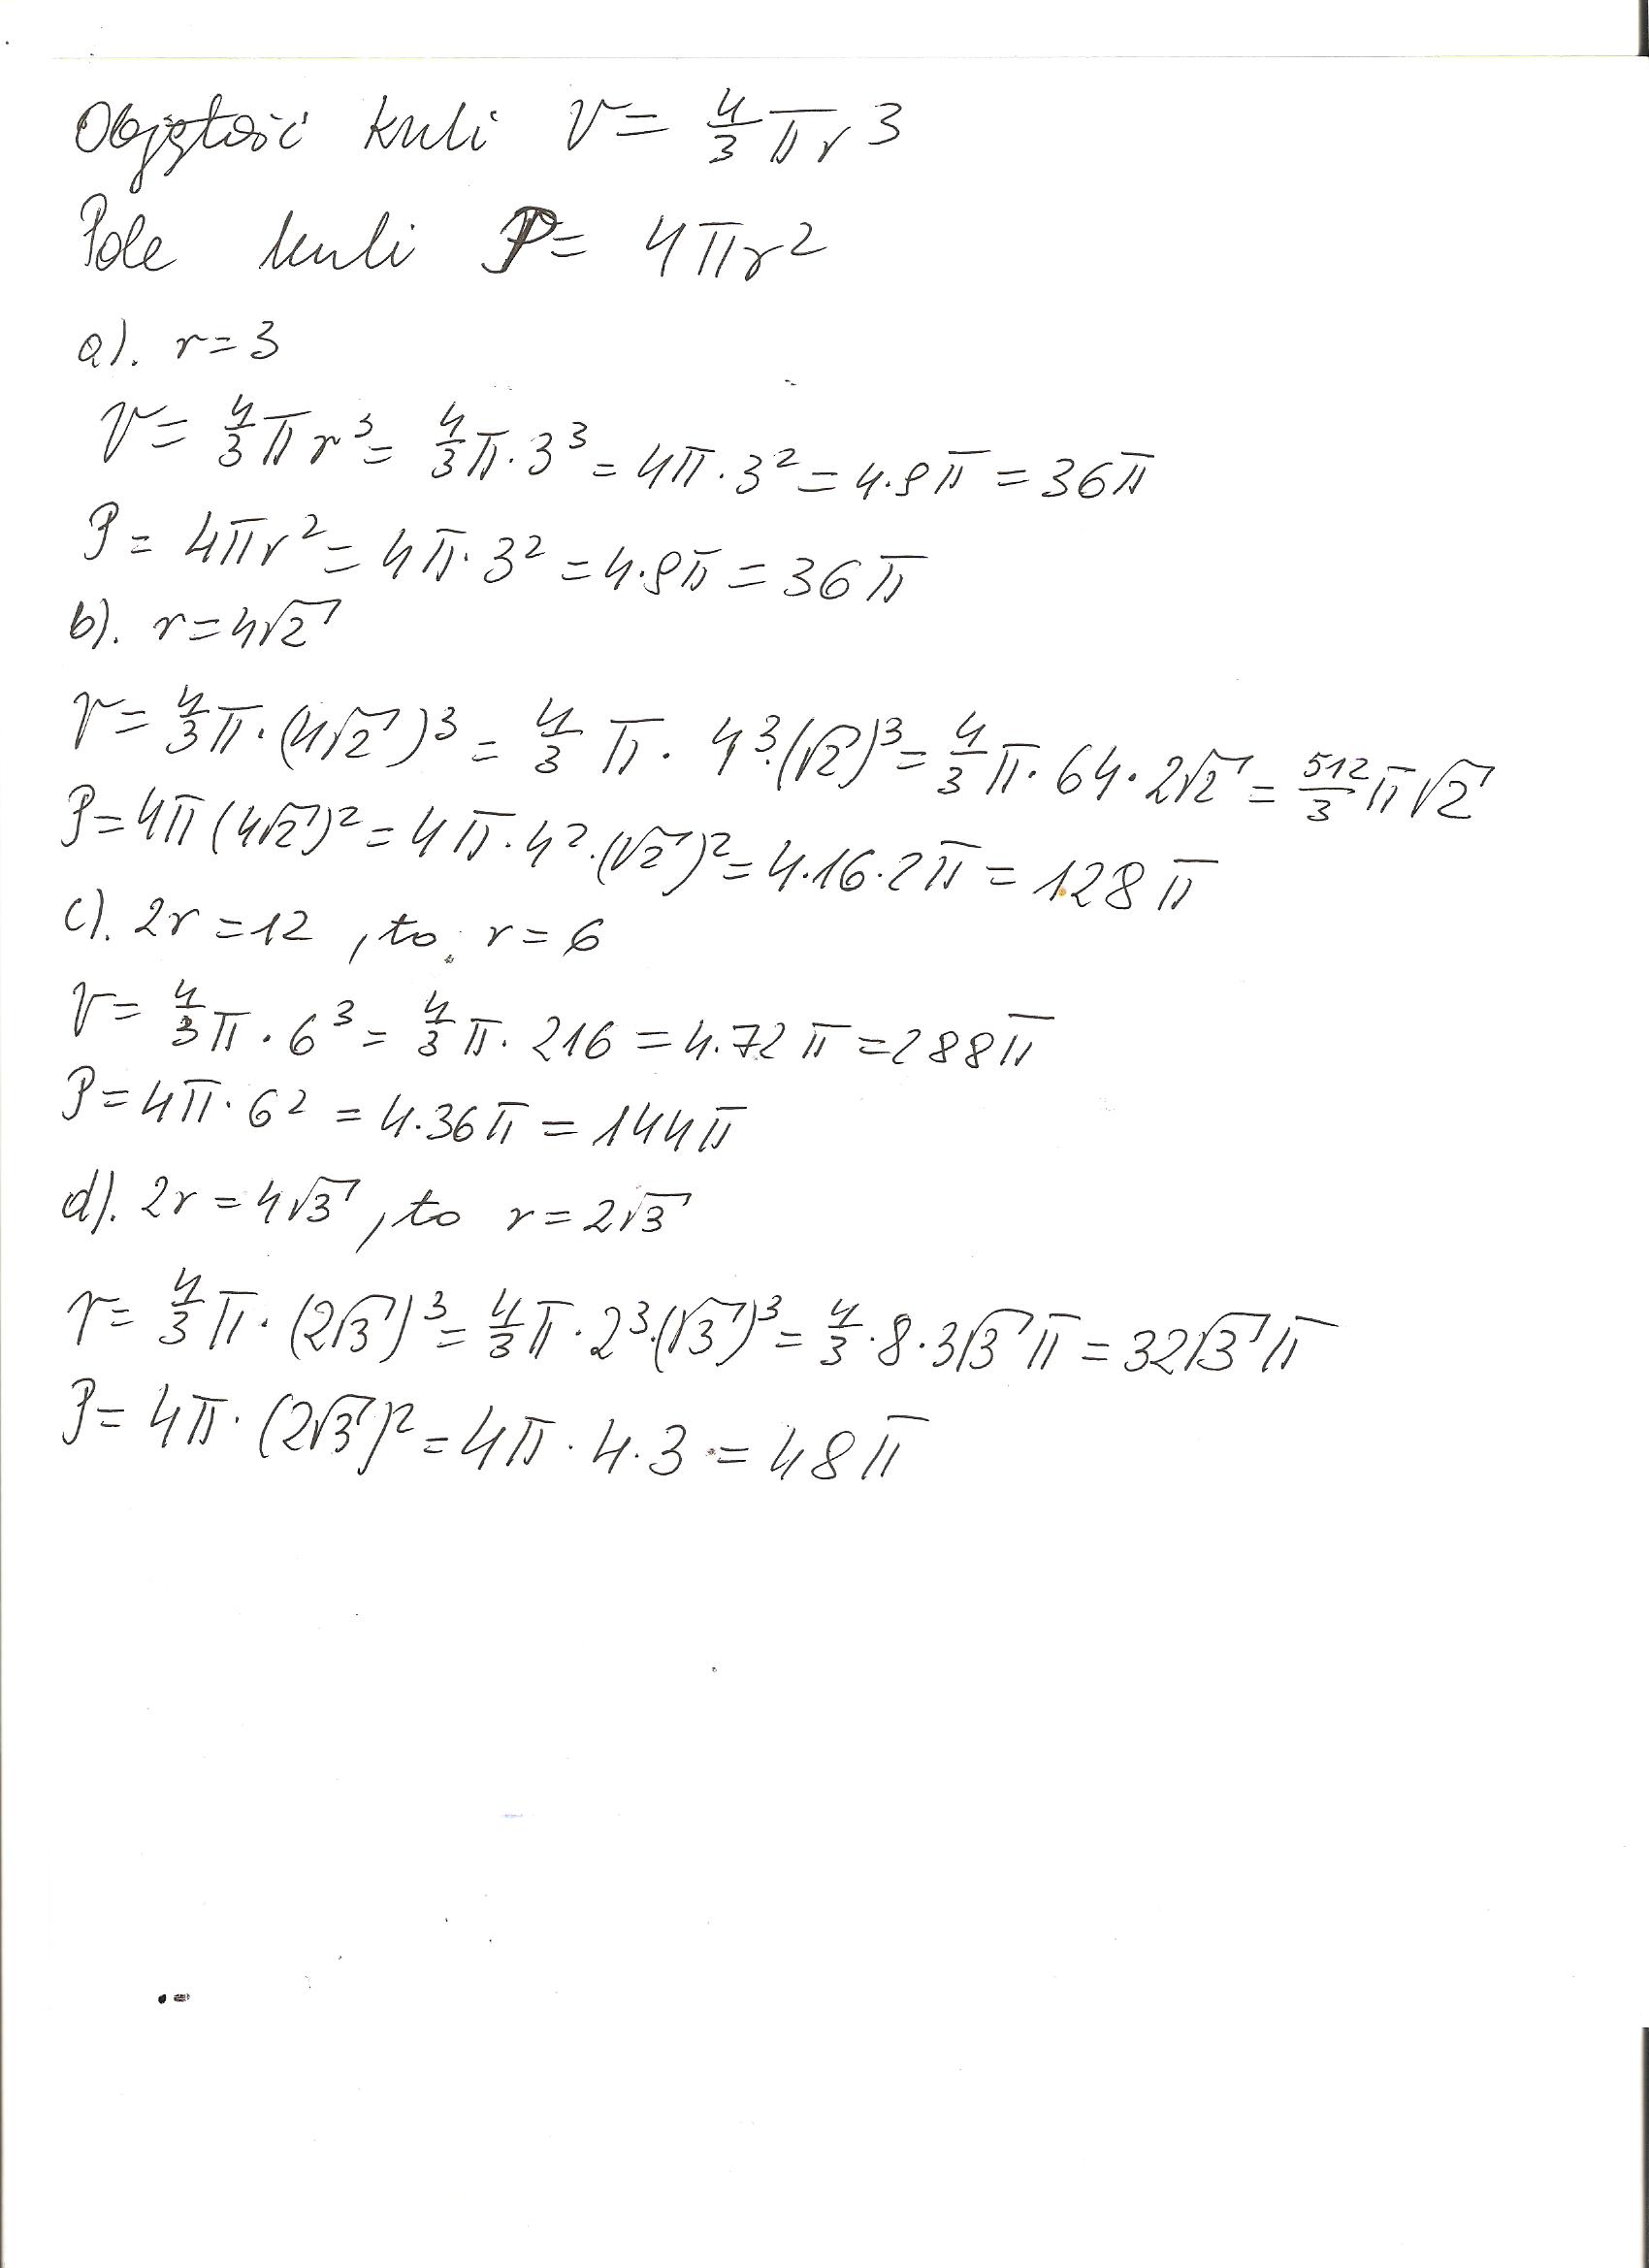 Objętość kuli V = 4/3 π r³
Pole kuli P = 4πr²
a). r = 3
V = 4/3 π r³ = 4/3 π · 3³ = 4π · 3² = 4·9π = 36π
P = 4πr² = 4π · 3² = 4·9π = 36π
b). r = 4√2
V = 4/3 π · (4√2)³ = 4/3 π · 4³·(√2)³ = 4/3 π · 64 · 2√2 = 512/3 π√2
P = 4π (4√2)² = 4π · 4² · (√2)² = 4·16·2π = 128π
c). 2r = 12, to r = 6
V = 4/3 π · 6³ = 4/3 π · 216 = 4·72π = 288π
P = 4π · 6² = 4·36π = 144π
d). 2r = 4√3, to r = 2√3
V = 4/3 π · (2√3)³ = 4/3 π · 2³·(√3)³ = 4/3 · 8 · 3√3 π = 32√3 π
P = 4π · (2√3)² = 4π · 4·3 = 48π